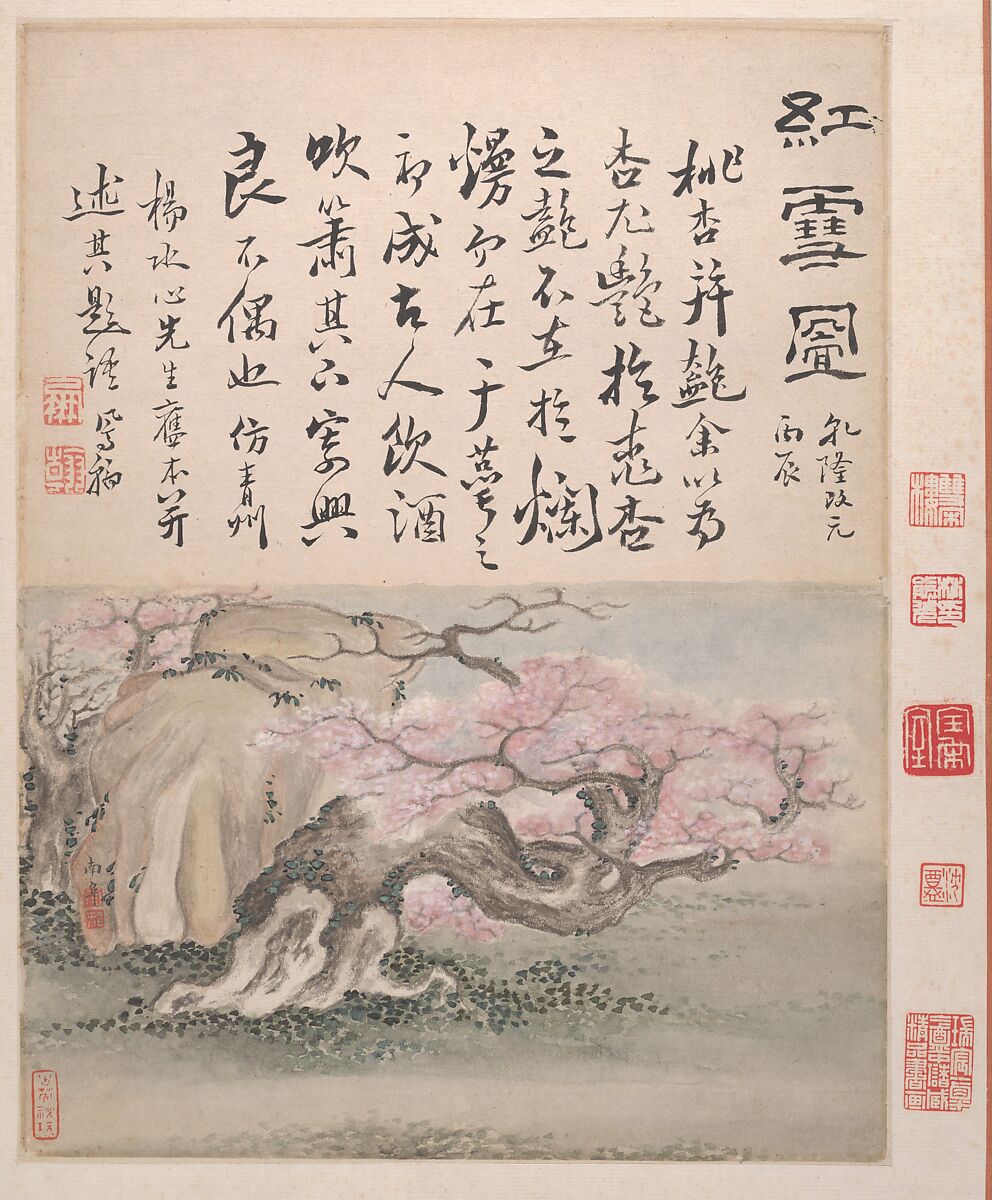 紅雪圖
乾隆改元
丙辰
桃杏并艷余以為
杏尤艷於桃杏
之艷不在於爛
熳而在于萼之
初成古人飲酒
吹簫其下寄興
良不偶也仿青州
楊水心先生舊本并
述其題語鳳翰
南阜